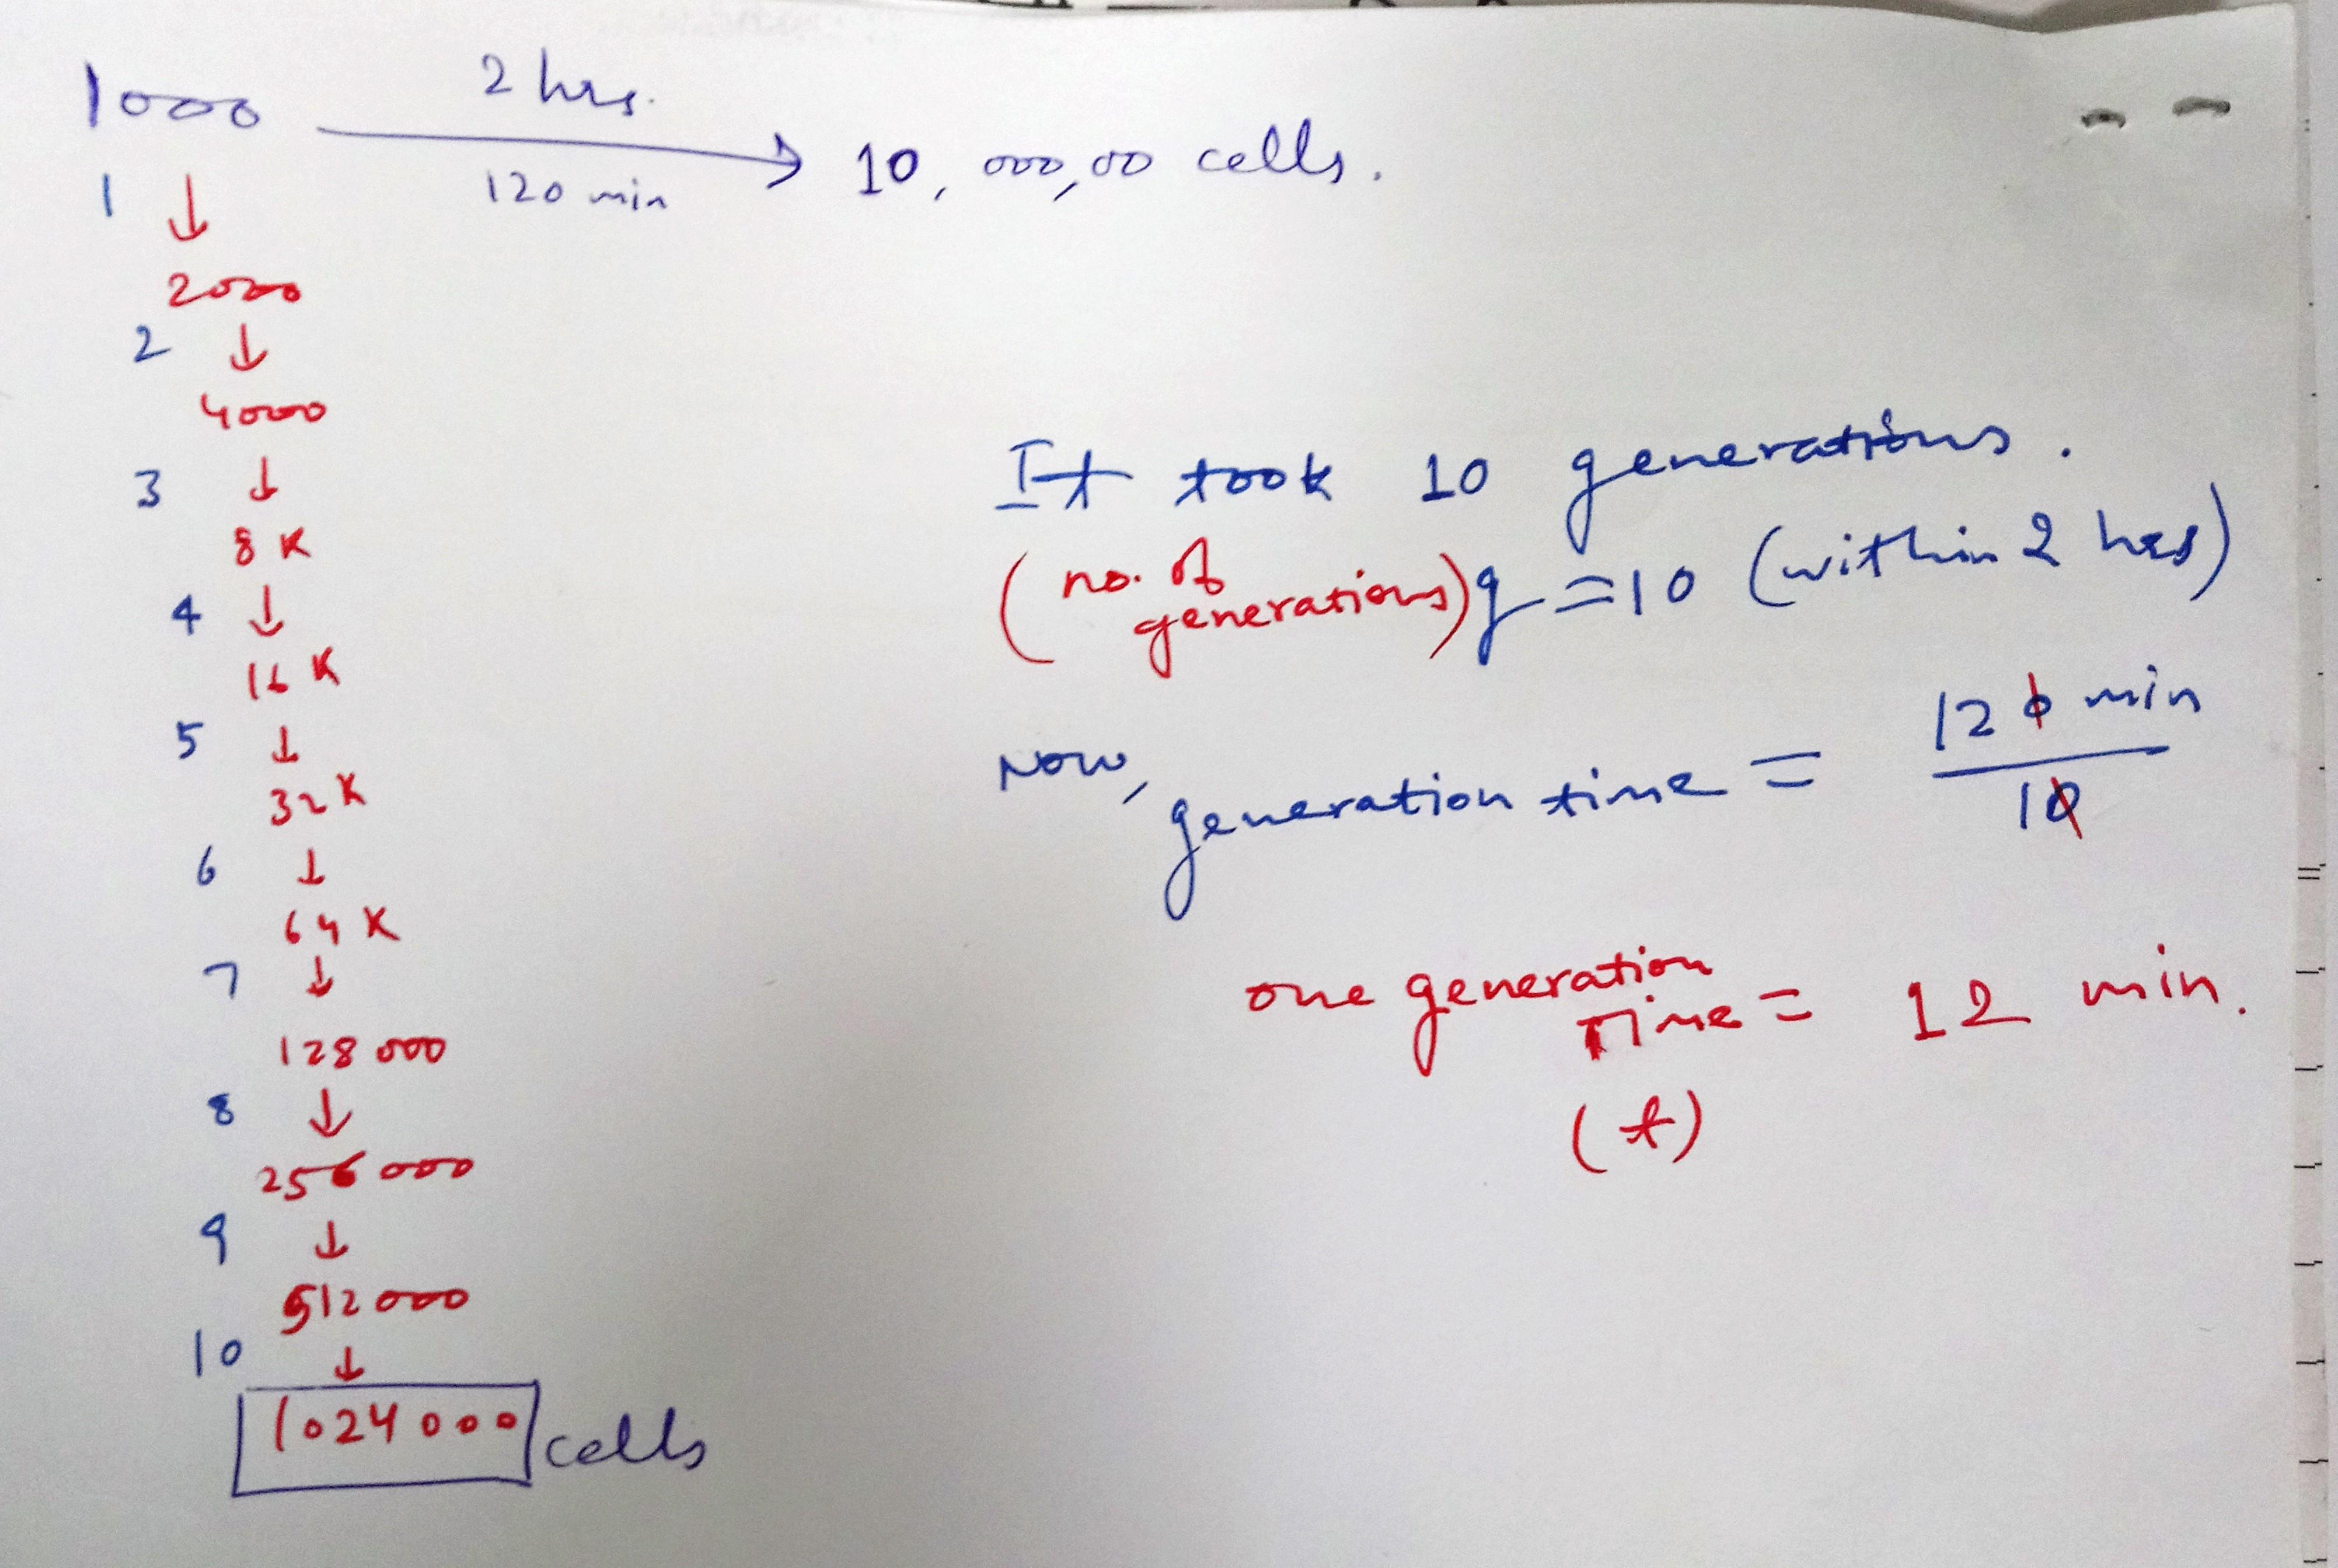 1000
2 hrs.
120 min
10,000,00 cells.
1 ↓
2000
2 ↓
4000
3 ↓
8 K
4 ↓
16 K
5 ↓
32 K
6 ↓
64 K
7 ↓
128 000
8 ↓
256 000
9 ↓
512 000
10 ↓
1024 000 cells
It took 10 generations.
(no. of generations) g = 10 (within 2 hrs)
Now, generation time = 120 min
10
one generation
Time = 12 min.
(t)